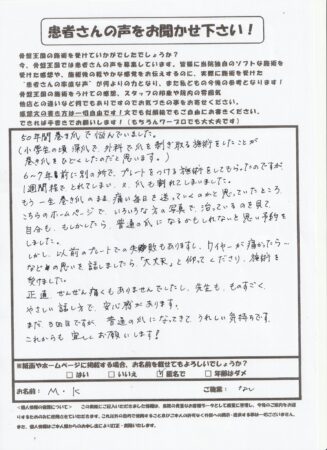 患者さんの声をお聞かせ下さい！
骨盤王国の施術を受けていかがでしたでしょうか？
今、骨盤王国では患者さんの声を募集しています。皆様に当院独自のソフトな施術を
受けた感想や、施術後の軽やかな感覚をお伝えするのに、実際に施術を受けた
“患者さんの率直な声”が何よりの力となり、また私どもの今後の参考となります！
骨盤王国の施術をうけての感想、スタッフの対応や院内の雰囲気
他店との違いなど何でもありますのでお気づきの事をお寄せください。
50年間巻き爪で悩んでいました。
(小学生の頃 深爪で、外科で爪を剥ぎ取る施術をしたことが
巻き爪をひどくしたのだと思います。)
6〜7年前に別の所で、プレートをつける施術をしてもらったのですが
1週間程でとれてしまい、又、爪も割れてしまいました。
もう一生巻き爪のまま、痛い毎日を送っていくのかと思っていたところ
こちらのホームページで、いろいろな方の写真で、治っているのを見て
自分も、もしかしたら、普通の爪になるかもしれないと思い予約を
しました。
しかし、以前のプレートでの失敗もありますし、ワイヤーが痛かったら…
など等の思いを話しましたら「大丈夫」と仰ってくださり、施術を
受けました。
正直、ぜんぜん痛くもありませんでしたし、先生も、ものすごく、
やさしい話し方で、安心感があります。
まだ、3回目ですが、普通の爪になってきて、うれしい気持ちです。
これからも宜しくお願いします！
※紙面やホームページに掲載する場合、お名前を載せてもよろしいでしょうか？
□はい　□いいえ　☑匿名で　□年齢はダメ
お名前： M・K　ご職業： なし